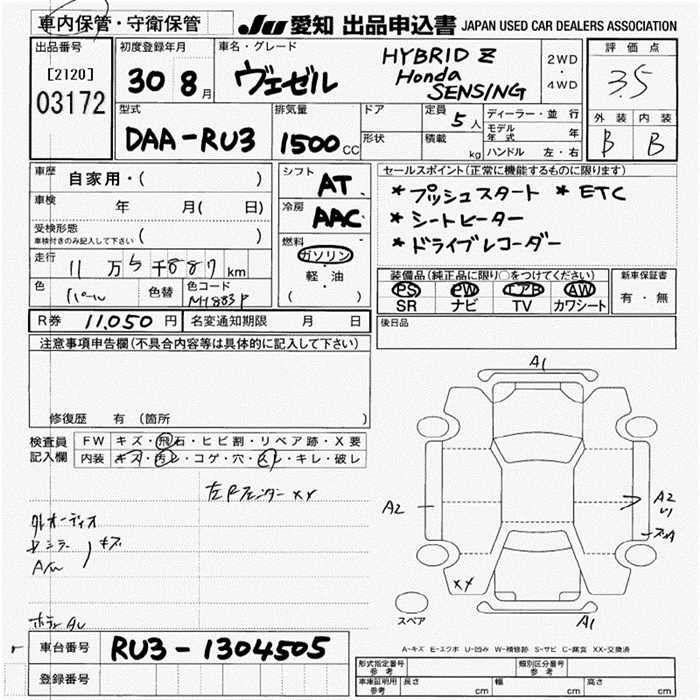 車内保管・守衛保管
JU 愛知 出品申込書 JAPAN USED CAR DEALERS ASSOCIATION
出品番号
[2120]
03172
初度登録年月
30 8月
車名・グレード
ヴェゼル
HYBRID Z
Honda
SENSING
2WD
・
4WD
評価点
3.5
外装 内装
B B
型式
DAA-RU3
排気量
1500 CC
ドア
形状
定員 5人
積載 kg
ディーラー・並行
モデル年式 年
ハンドル 左・右
車歴 自家用・( )
車検 年 月( 日)
受検形態
車検付きのみ記入して下さい ( )
走行 11万5千887km
色 パール 色替 色コード
シフト AT
冷房 AAC
燃料
ガソリン
・
軽・油
( )
セールスポイント(正常に機能するものに限ります)
* プッシュスタート * ETC
* シートヒーター
* ドライブレコーダー
装備品(純正品に限り○をつけてください)
PS PW エアB AW
SR ナビ TV カワシート
新車保証書
有・無
R券 11,050円 名変通知期限 月 日
後日品
注意事項申告欄(不具合内容等は具体的に記入して下さい)
修復歴 有 (箇所 )
検査員
記入欄
FW キズ・飛石・ヒビ割・リペア跡・X要
内装 キズ・汚レ・コゲ・穴・スレ・キレ・破レ
左Fフェンダー XX
外オーディオ
キズ
A1
A2
A2
XX
A1
スペア
A-キズ E-エクボ U-凹み W-補修跡 S-サビ C-腐食 XX-交換済
車台番号 RU3-1304505
登録番号
形式指定番号
参考
類別区分番号
参考
車庫証明用
参考
長さ cm 幅 cm 高さ cm